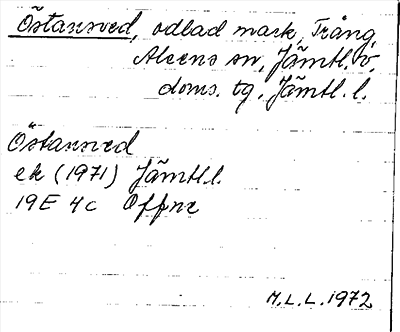 Östansved, odlad mark, Trång,
Alsens sn, Jämtl. v.
doms. tg, Jämtl. l.
Östansved
ek (1971) Jämtl.l.
19E 4c Offne
M.L.L. 1972